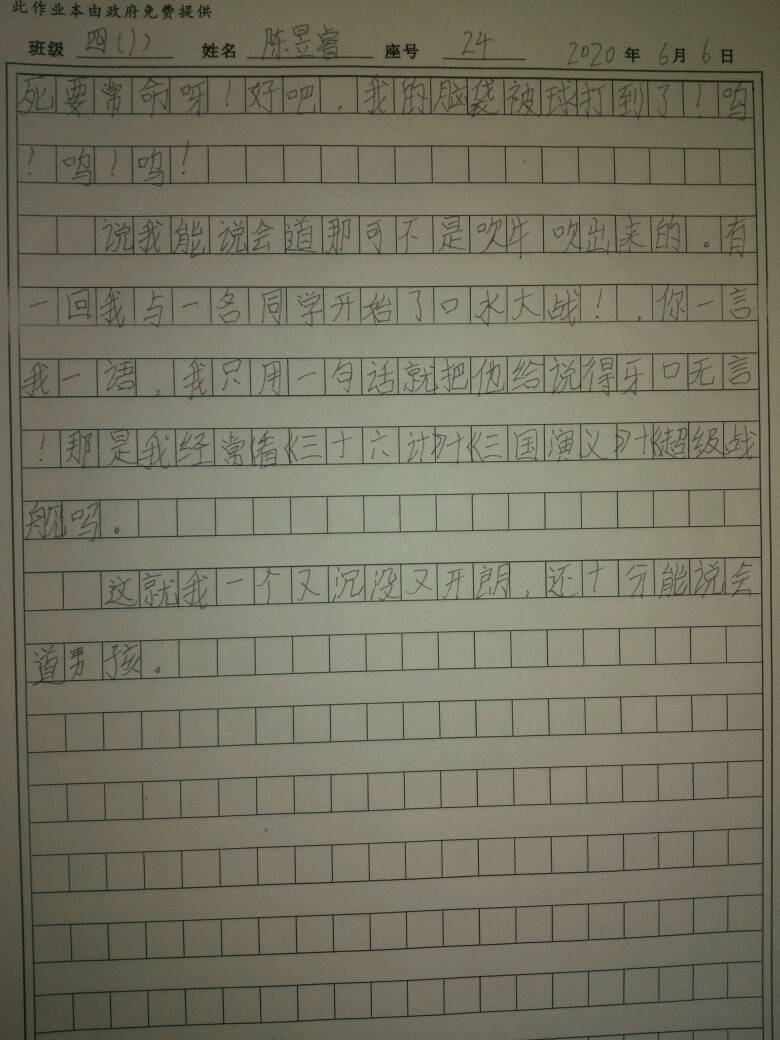 此作业本由政府免费提供
班级 四(1) 姓名 陈昱睿 座号 24 2020年6月6日
死要常命呀！好吧，我的脑袋被球打到了！呜
！呜！呜！
说我能说会道那可不是吹牛吹出来的。有
一回我与一名同学开始了口水大战！，你一言
我一语，我只用一句话就把他给说得牙口无言
！那是我经常看《三十六计》十《三国演义》十《超级战
舰吗。
这就我一个又沉没又开朗，还十分能说会
道男孩。